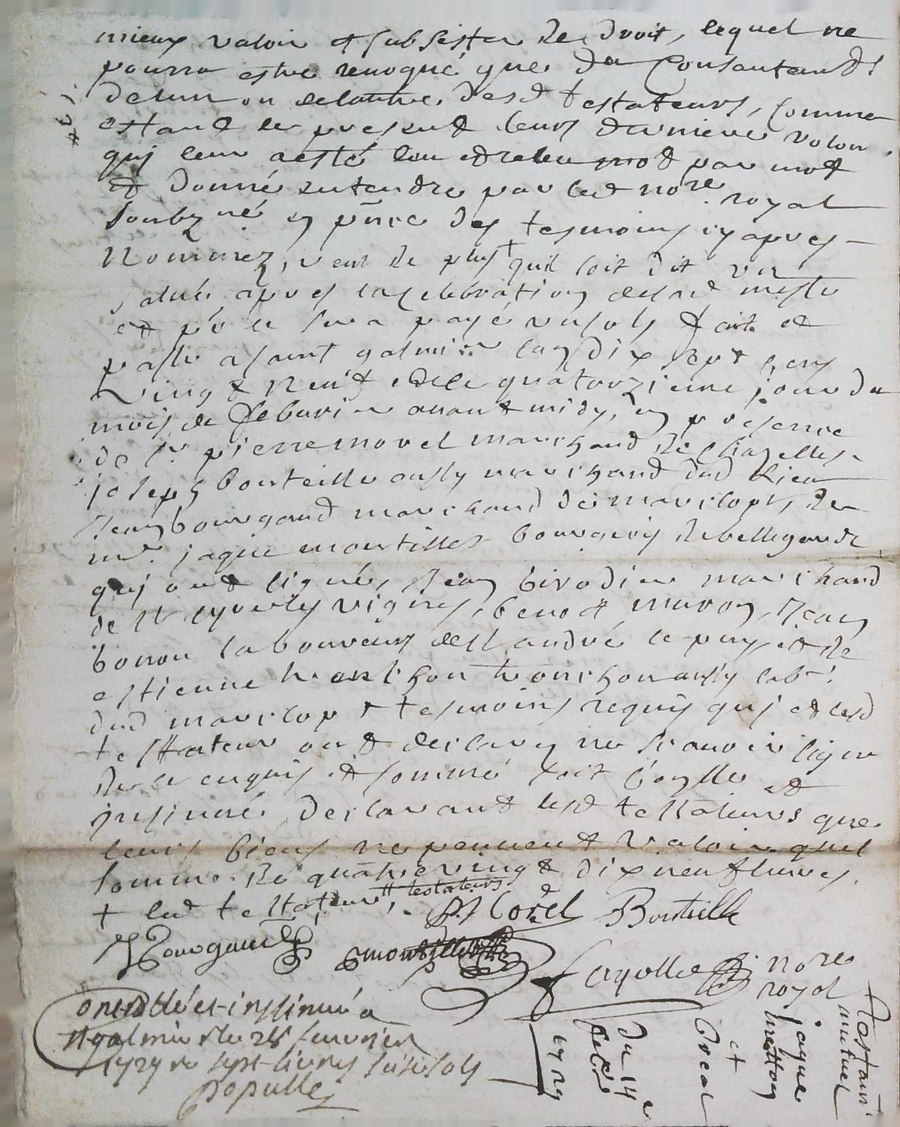 mieux valoir et subsister de droit, lequel ne
pourra estre revoqué que du Consentemt
de lun ou de lautre desd testateurs, comme
estant le present leurs derniere volon
qui leur a esté leu et releu mot par mot
et donné entendre par led nore royal
soubzné en pnce des tesmoins cy apres
Nommez, veut de plus quil soit dit un
salve apres la celebration de lad messe
et po ce sera payé sols fait et
passé a saint galmier lan dix sept cens
Vingt Neuf et le quatorzieme jour du
mois de febvrier avant midy, en presence
de Sr pierre morel marchand de chazelles
joseph bouteille aussy marchand dud lieu
jean bourgand marchand de marclopt, de
me jaque montilles bourgeois de bellegarde
qui ont signés, jean birodier marchand
de St cyr les vignes, benoit jean
bonon laboureur de St andré le puy et de
estienne tronchon aussy labr
dud marclopt tesmoins requis qui et lesd
testateur ont declaré ne scavoir signer
de ce enquis et sommé soit controllé et
insinué declarant lesd testateurs que
leurs biens ne peuvent valoir que
somme de quatre vingt dix neuf livres
+ led testateur, testateurs
P Morel Bouteille
JBourgand montilles
Cayolle nore
royal
controllé et insinué a
St galmier le 28 fevrier
1729 Re sept livres sols
Populle
Du 14e
feb
1729
et
jaque
Testam
mutuel